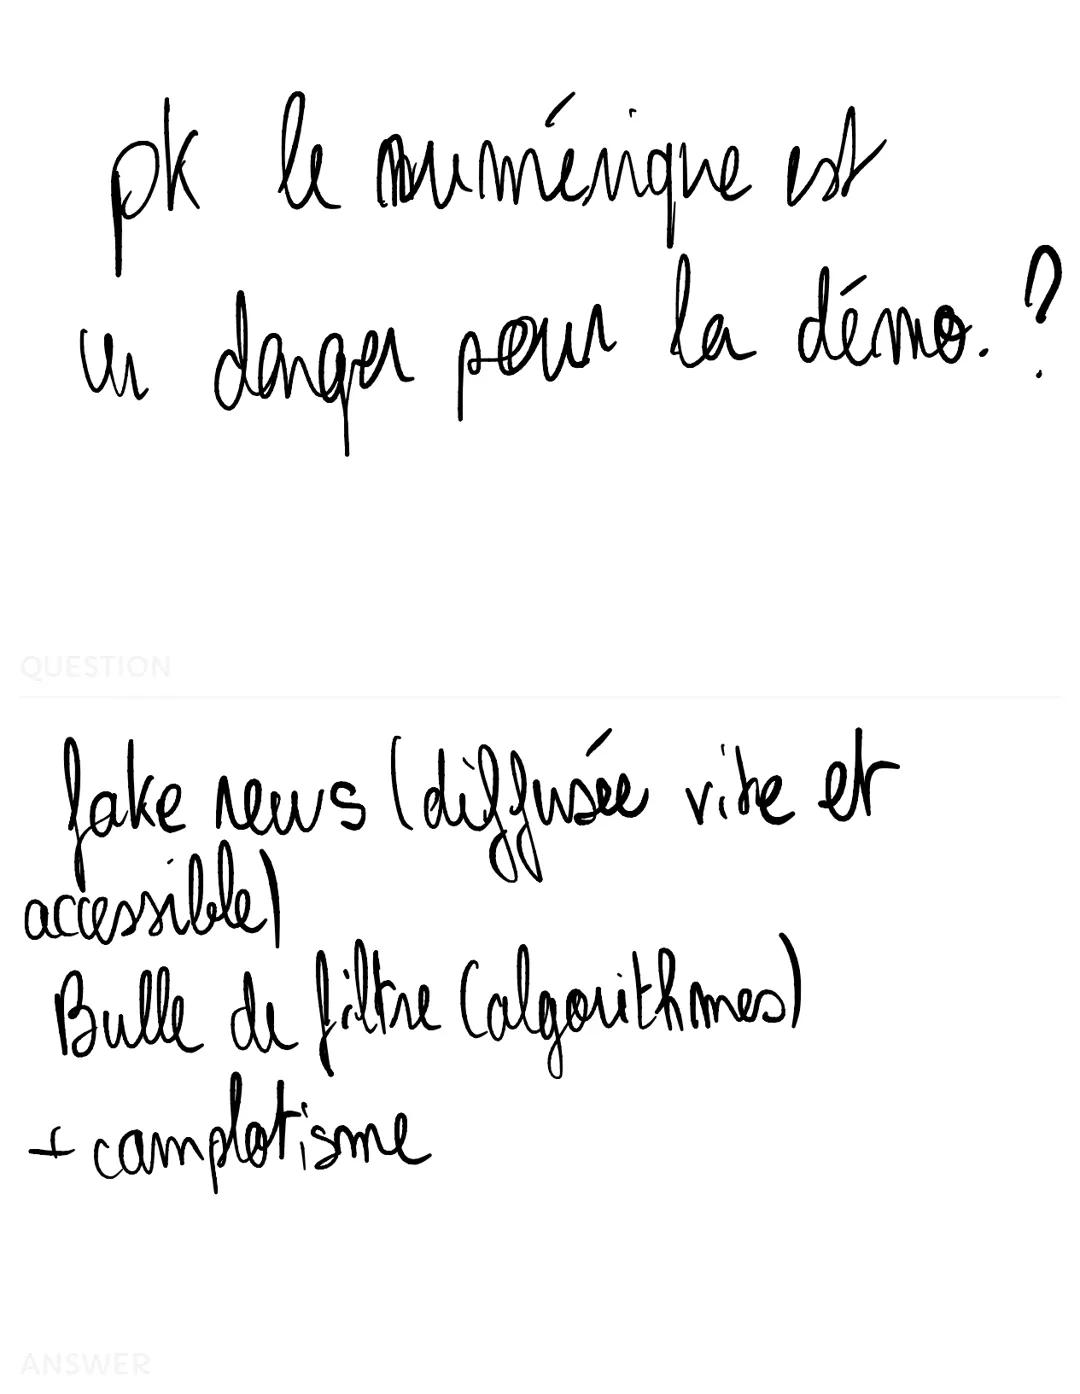 pk le numérique est
un danger pour la démo.?
QUESTION
fake news (diffusée vite et
accessible)
Bulle de filtre (algorithmes)
+ complotisme
ANSWER